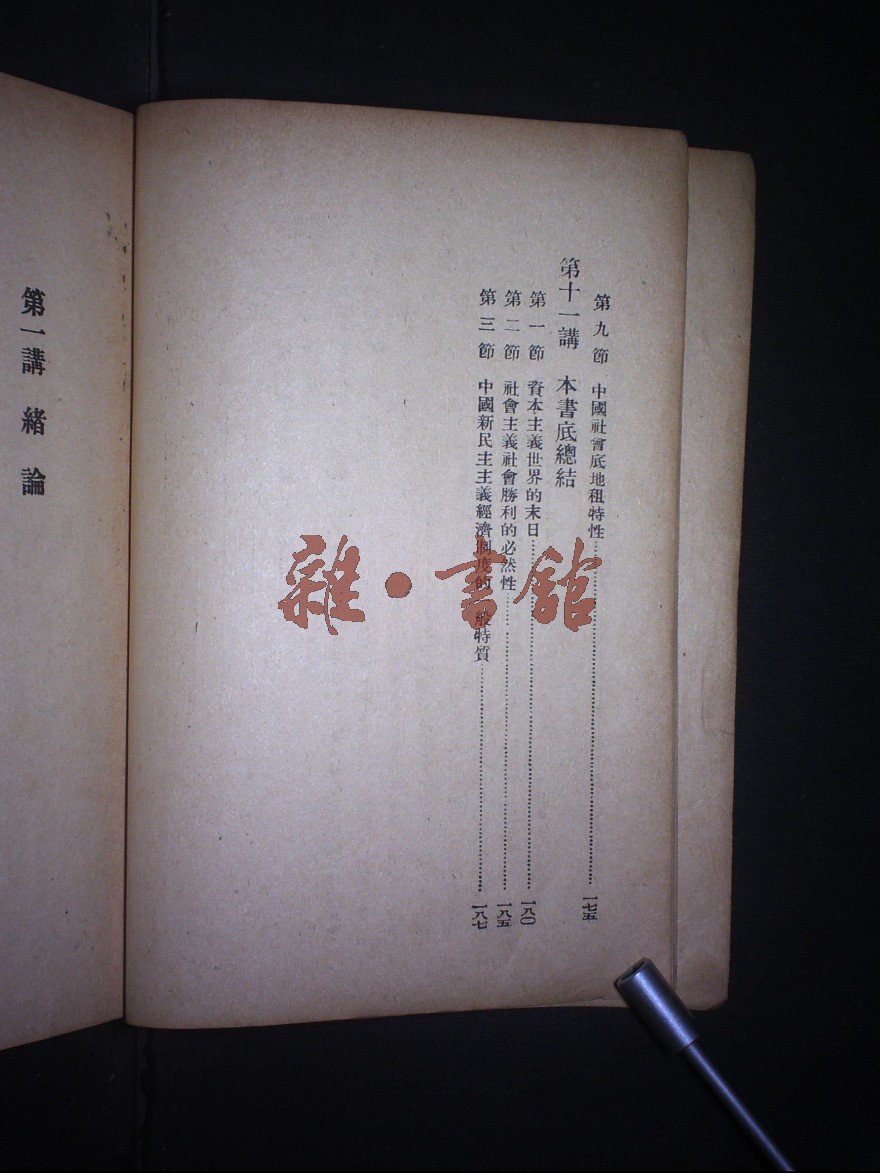 第九節 中國社會底地租特性……一七五
第十一講 本書底總結
第一節 資本主義世界的末日……一八〇
第二節 社會主義社會勝利的必然性……一八五
第三節 中國新民主主義經濟制度的一般特質……一八七
第一講 緒論
雜·書館